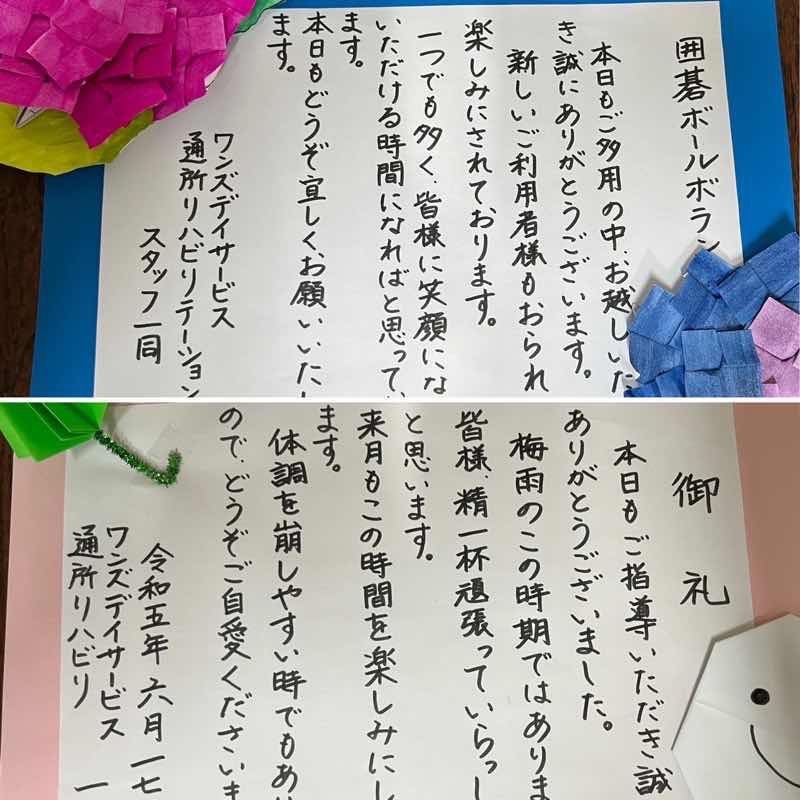 囲碁ボールボラン
本日もご多用の中、お越しいた
き誠にありがとうございます。
新しいご利用者様もおられ
楽しみにされております。
一つでも多く、皆様に笑顔にな
いただける時間になればと思ってい
ます。
本日もどうぞ宜しくお願いいたし
ます。
ワンズデイサービス
通所リハビリテーション
スタッフ一同
御礼
本日もご指導いただき誠
ありがとうございました。
梅雨のこの時期ではありま
皆様、精一杯頑張っていらっし
と思います。
来月もこの時間を楽しみにし
ます。
体調を崩しやすい時でもあり
ので、どうぞご自愛くださいま
令和五年六月一七
ワンズデイサービス
通所リハビリ